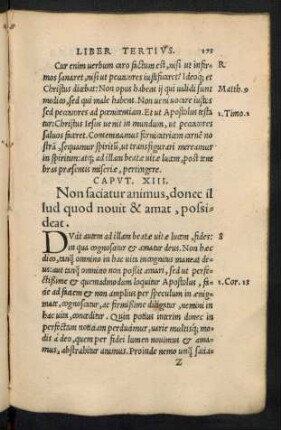 LIBER TERTIVS. 171
Cur enim verbum caro factum est, nisi ut infir- R
mos sanaret, nisi ut peccatores iustificaret? Ideoq; et
Christus dicebat: Non opus habent ij qui ualidi sunt Matth.9
medico, sed qui male habent. Non ueni uocare iustos
sed peccatores ad pœnitentiam. Et ut Apostolus testa 1.Timo.1
tur: Christus Iesus uenit in mundum, ut peccatores
saluos faceret. Contemnamus fornicariam carnē no
strā, sequamur spiritū, ut transfigurari mereamur
in spiritum: atq; ad illam beatæ uitæ lucem, post tene
bras præsentis miseriæ, pertingere.
CAPVT. XIII.
Non saciatur animus, donec il
lud quod nouit & amat, possi-
deat.
Duit autem ad illam beatæ uitæ lucem, fides: S
in qua cognosatur & amatur deus. Non hac
dico, tanq̃ omnino in hac uita incognitus maneat de-
us: aut tanq̃ omnino non possit amari, sed ut perfe-
ctissime & quemadmodum loquitur Apostolus, fa- 1.Cor.13
cie ad faciem & non amplius per speculum in ænig-
mate, cognosatur, ac firmissime diligatur, nemini in
hac uita, conceditur. Quin potius interim donec in
perfectam notitiam perduamur, uarie multisq; mo-
dis à deo, quem per fidei lumen nouimus & ama-
mus, abstrahitur animus. Proinde nemo unq̃ sacia-
Z